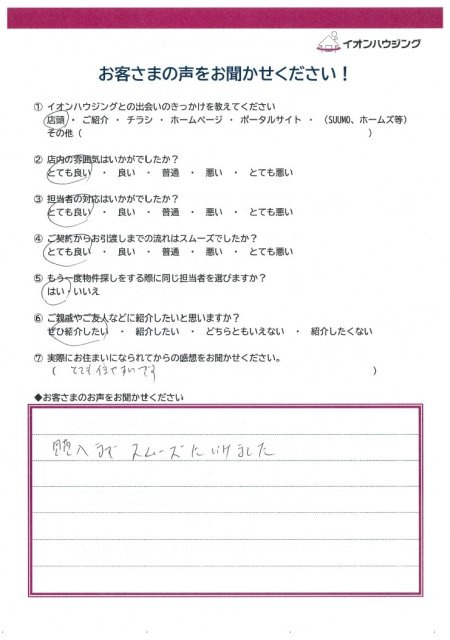 イオンハウジング
お客さまの声をお聞かせください！
① イオンハウジングとの出会いのきっかけを教えてください
店頭 ・ ご紹介 ・ チラシ ・ ホームページ ・ ポータルサイト ・ （SUUMO、ホームズ等）
その他（ ）
② 店内の雰囲気はいかがでしたか？
とても良い ・ 良い ・ 普通 ・ 悪い ・ とても悪い
③ 担当者の対応はいかがでしたか？
とても良い ・ 良い ・ 普通 ・ 悪い ・ とても悪い
④ ご契約からお引渡しまでの流れはスムーズでしたか？
とても良い ・ 良い ・ 普通 ・ 悪い ・ とても悪い
⑤ もう一度物件探しをする際に同じ担当者を選びますか？
はい・いいえ
⑥ ご親戚やご友人などに紹介したいと思いますか？
ぜひ紹介したい ・ 紹介したい ・ どちらともいえない ・ 紹介したくない
⑦ 実際にお住まいになられてからの感想をお聞かせください。
（ とても住みやすいです ）
◆お客さまのお声をお聞かせください
購入まで スムーズにいけました